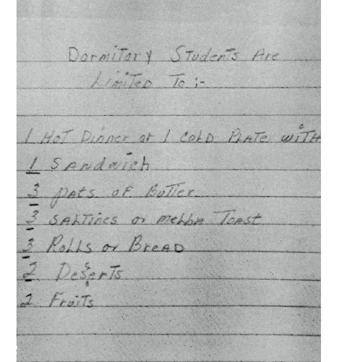 Dormitory Students Are
Limited To :-
1 Hot Dinner or 1 Cold Plate with
1 Sandwich
3 pats of Butter
3 saltines or melba Toast
3 Rolls or Bread
2 Deserts
2 Fruits